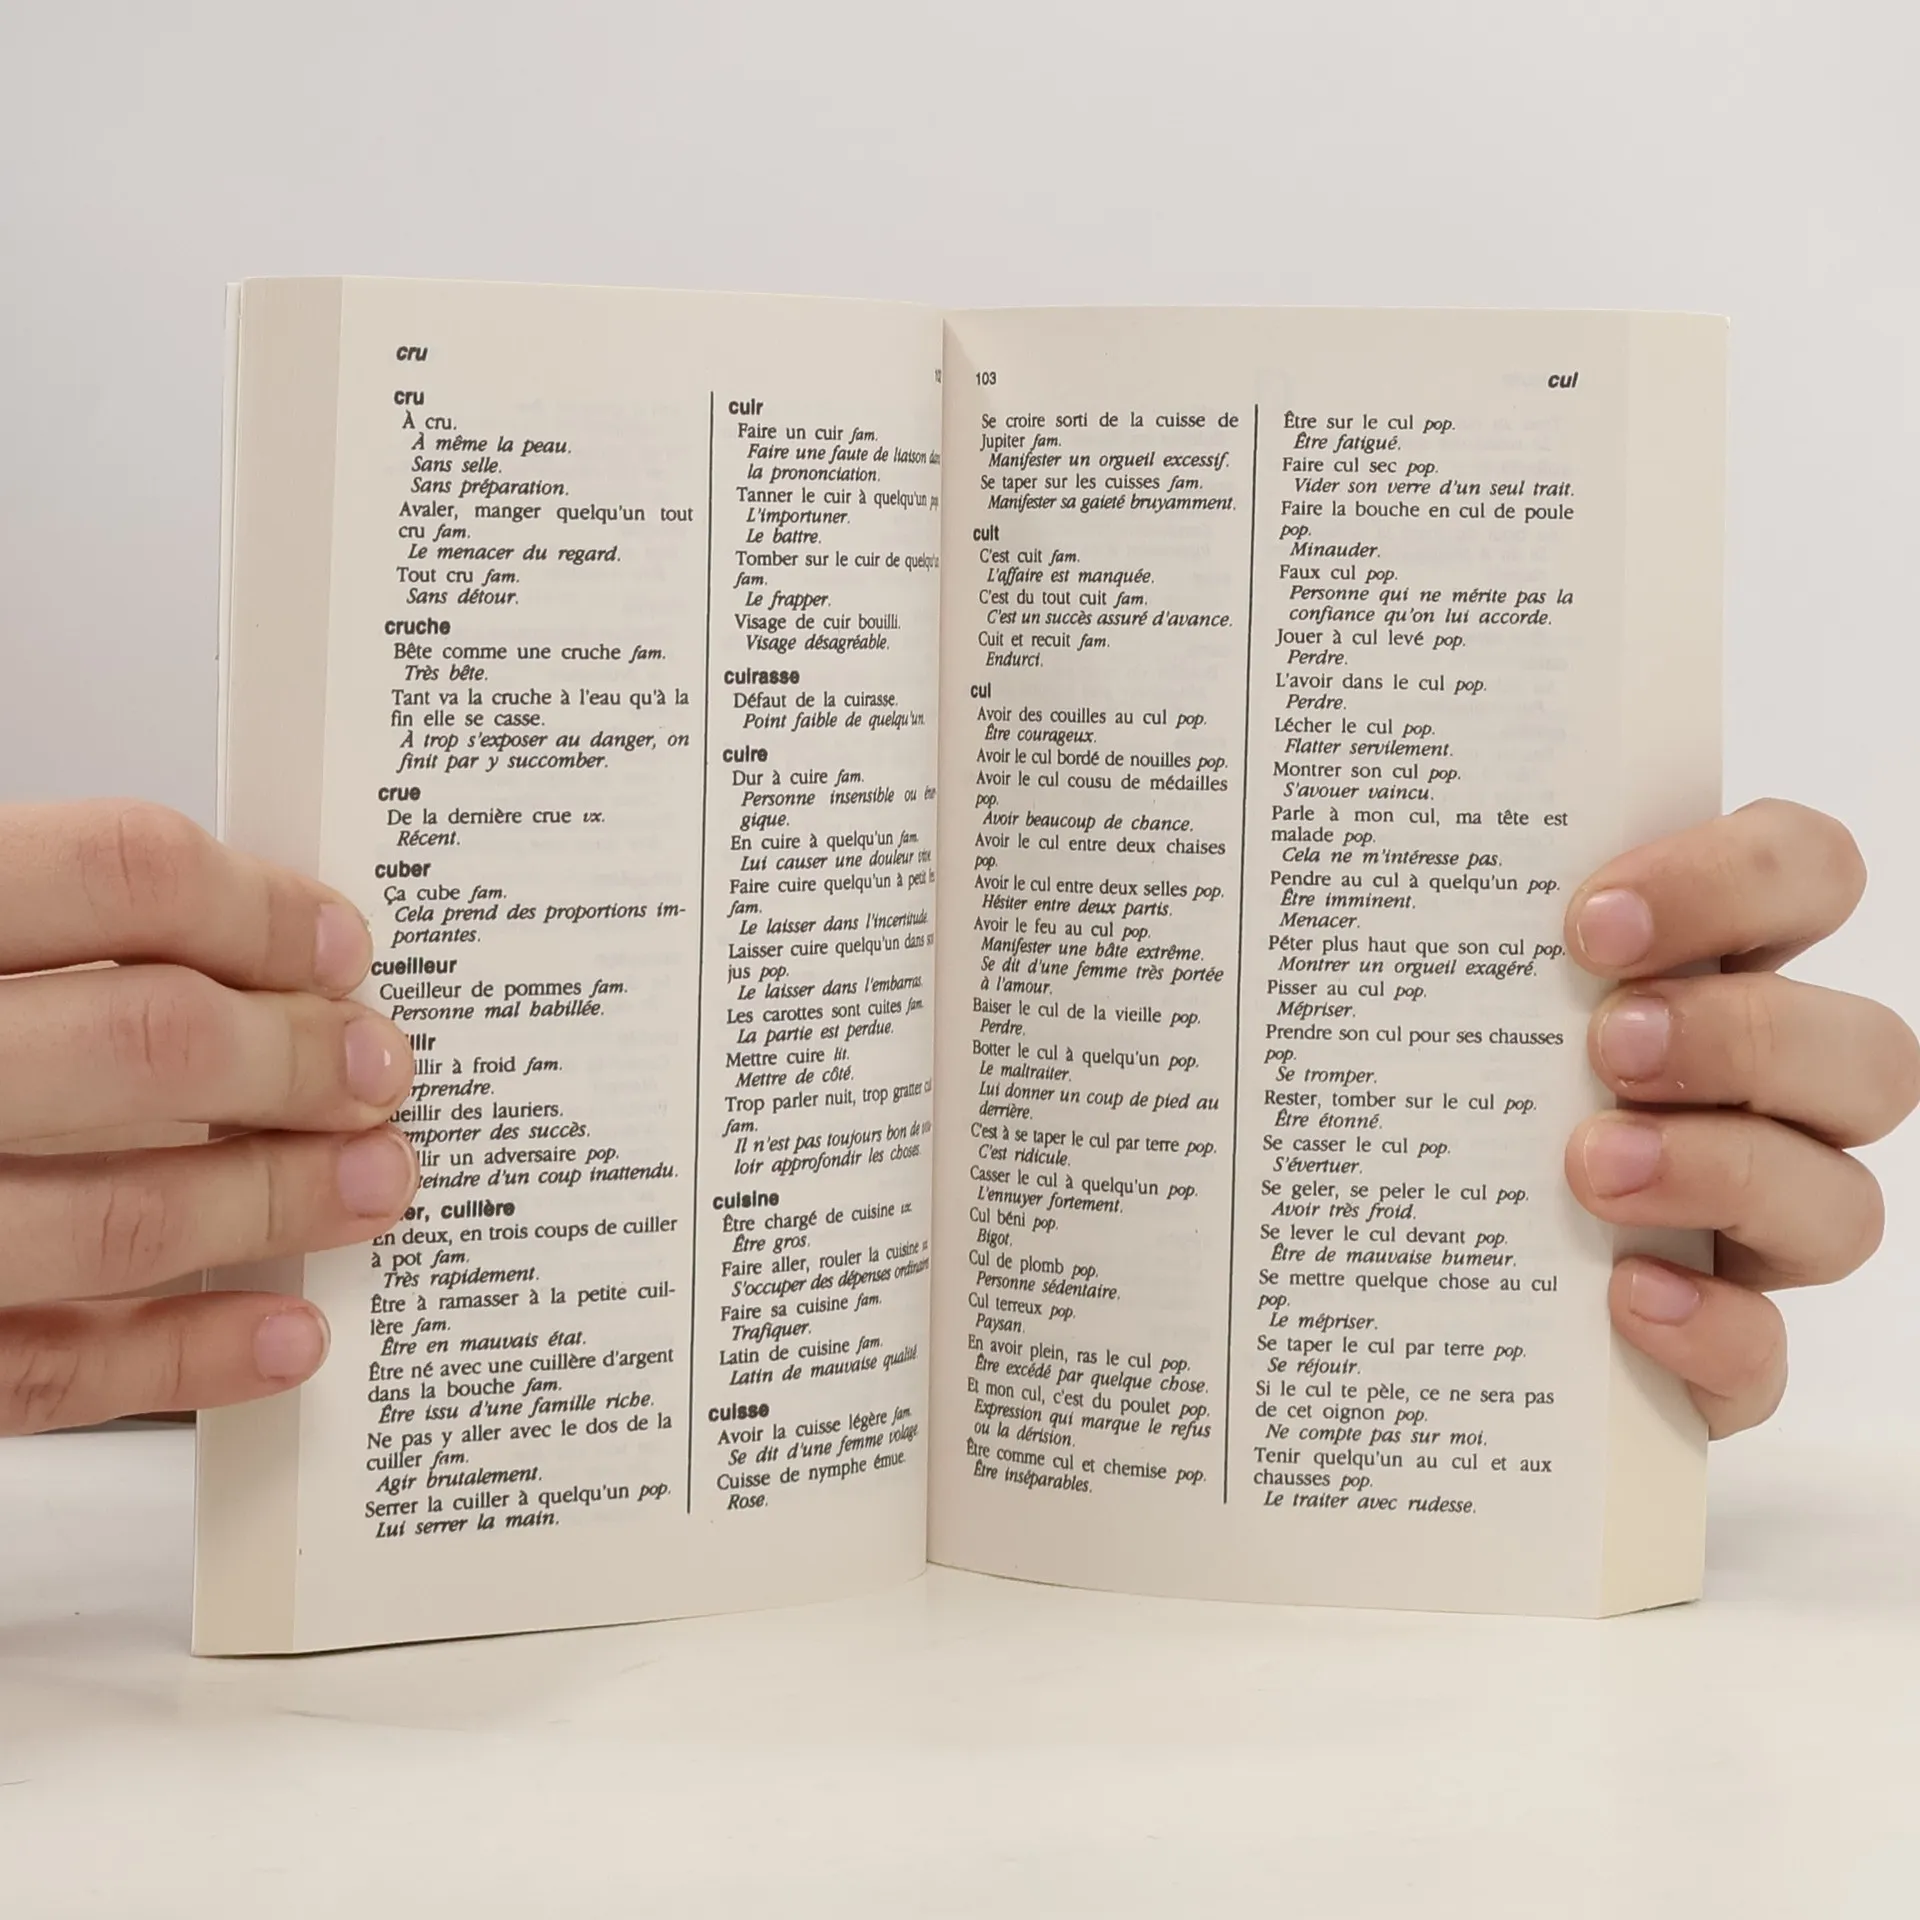 cru
cru
À cru.
À même la peau.
Sans selle.
Sans préparation.
Avaler, manger quelqu'un tout
cru fam.
Le menacer du regard.
Tout cru fam.
Sans détour.
cruche
Bête comme une cruche fam.
Très bête.
Tant va la cruche à l'eau qu'à la
fin elle se casse.
À trop s'exposer au danger, on
finit par y succomber.
crue
De la dernière crue vx.
Récent.
cuber
Ça cube fam.
Cela prend des proportions im-
portantes.
cueilleur
Cueilleur de pommes fam.
Personne mal habillée.
à froid fam.
des lauriers.
des succès.
un adversaire pop.
d'un coup inattendu.
cuillère
En deux, en trois coups de cuiller
à pot fam.
Très rapidement.
Être à ramasser à la petite cuil-
lère fam.
Être en mauvais état.
Être né avec une cuillère d'argent
dans la bouche fam.
Être issu d'une famille riche.
Ne pas y aller avec le dos de la
cuiller fam.
Agir brutalement.
Serrer la cuiller à quelqu'un pop.
Lui serrer la main.
cuir
Faire un cuir fam.
Faire une faute de liaison dans
la prononciation.
Tanner le cuir à quelqu'un
L'importuner.
Le battre.
Tomber sur le cuir de quelqu'un
fam.
Le frapper.
Visage de cuir bouilli.
Visage désagréable.
cuirasse
Défaut de la cuirasse.
Point faible de quelqu'un.
cuire
Dur à cuire fam.
Personne insensible ou
gique.
En cuire à quelqu'un fam.
Lui causer une douleur vive.
Faire cuire quelqu'un à petit
fam.
Le laisser dans l'incertitude.
Laisser cuire quelqu'un dans son
jus pop.
Le laisser dans l'embarras.
Les carottes sont cuites fam.
La partie est perdue.
Mettre cuire lit.
Mettre de côté.
Trop parler nuit, trop gratter
fam.
Il n'est pas toujours bon de
loir approfondir les choses.
cuisine
Être chargé de cuisine vx.
Être gros.
Faire aller, rouler la cuisine
S'occuper des dépenses ordinaires
Faire sa cuisine fam.
Trafiquer.
Latin de cuisine fam.
Latin de mauvaise qualité.
cuisse
Avoir la cuisse légère fam.
Se dit d'une femme volage.
Cuisse de nymphe émue.
Rose.
103
cul
Se croire sorti de la cuisse de
Jupiter fam.
Manifester un orgueil excessif.
Se taper sur les cuisses fam.
Manifester sa gaieté bruyamment.
cuit
C'est cuit fam.
L'affaire est manquée.
C'est du tout cuit fam.
C'est un succès assuré d'avance.
Cuit et recuit fam.
Endurci.
cul
Avoir des couilles au cul pop.
Être courageux.
Avoir le cul bordé de nouilles pop.
Avoir le cul cousu de médailles
pop.
Avoir beaucoup de chance.
Avoir le cul entre deux chaises
pop.
Avoir le cul entre deux selles pop.
Hésiter entre deux partis.
Avoir le feu au cul pop.
Manifester une hâte extrême.
Se dit d'une femme très portée
à l'amour.
Baiser le cul de la vieille pop.
Perdre.
Botter le cul à quelqu'un pop.
Le maltraiter.
Lui donner un coup de pied au
derrière.
C'est à se taper le cul par terre pop.
C'est ridicule.
Casser le cul à quelqu'un pop.
L'ennuyer fortement.
Cul béni pop.
Bigot.
Cul de plomb pop.
Personne sédentaire.
Cul terreux pop.
Paysan.
En avoir plein, ras le cul pop.
Être excédé par quelque chose.
Et mon cul, c'est du poulet pop.
Expression qui marque le refus
ou la dérision.
Être comme cul et chemise pop.
Être inséparables.
Être sur le cul pop.
Être fatigué.
Faire cul sec pop.
Vider son verre d'un seul trait.
Faire la bouche en cul de poule
pop.
Minauder.
Faux cul pop.
Personne qui ne mérite pas la
confiance qu'on lui accorde.
Jouer à cul levé pop.
Perdre.
L'avoir dans le cul pop.
Perdre.
Lécher le cul pop.
Flatter servilement.
Montrer son cul pop.
S'avouer vaincu.
Parle à mon cul, ma tête est
malade pop.
Cela ne m'intéresse pas.
Pendre au cul à quelqu'un pop.
Être imminent.
Menacer.
Péter plus haut que son cul pop.
Montrer un orgueil exagéré.
Pisser au cul pop.
Mépriser.
Prendre son cul pour ses chausses
pop.
Se tromper.
Rester, tomber sur le cul pop.
Être étonné.
Se casser le cul pop.
S'évertuer.
Se geler, se peler le cul pop.
Avoir très froid.
Se lever le cul devant pop.
Être de mauvaise humeur.
Se mettre quelque chose au cul
pop.
Le mépriser.
Se taper le cul par terre pop.
Se réjouir.
Si le cul te pèle, ce ne sera pas
de cet oignon pop.
Ne compte pas sur moi.
Tenir quelqu'un au cul et aux
chausses pop.
Le traiter avec rudesse.